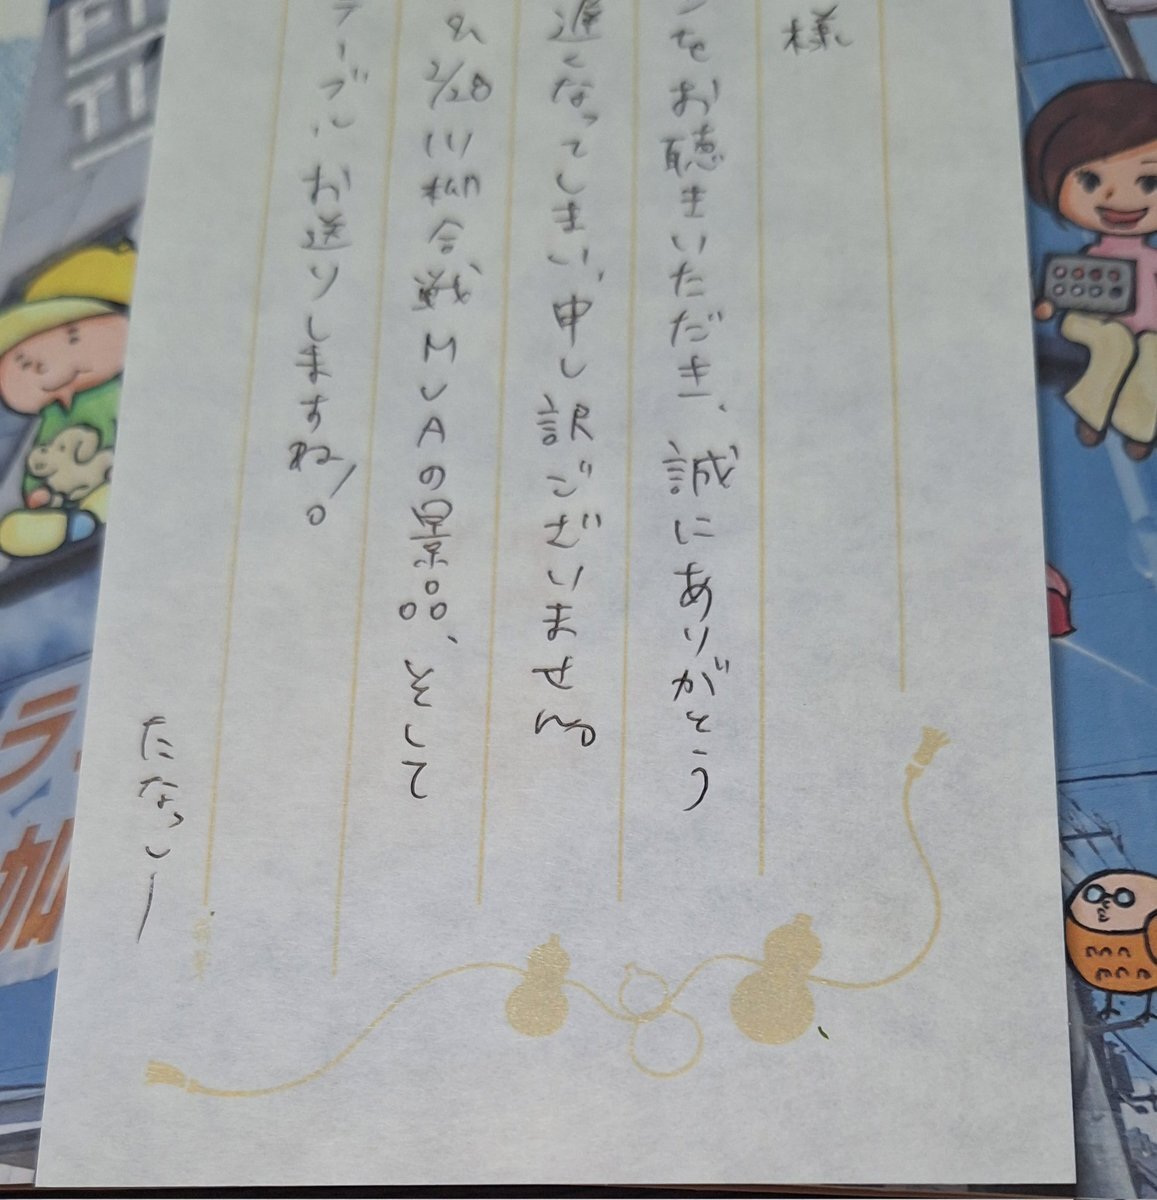 様
をお聴きいただき、誠にありがとう
遅くなってしまい、申し訳ございません
2/28 川柳合戦MVAの景品、そして
テーブルお送りしますね!。
たなっしー